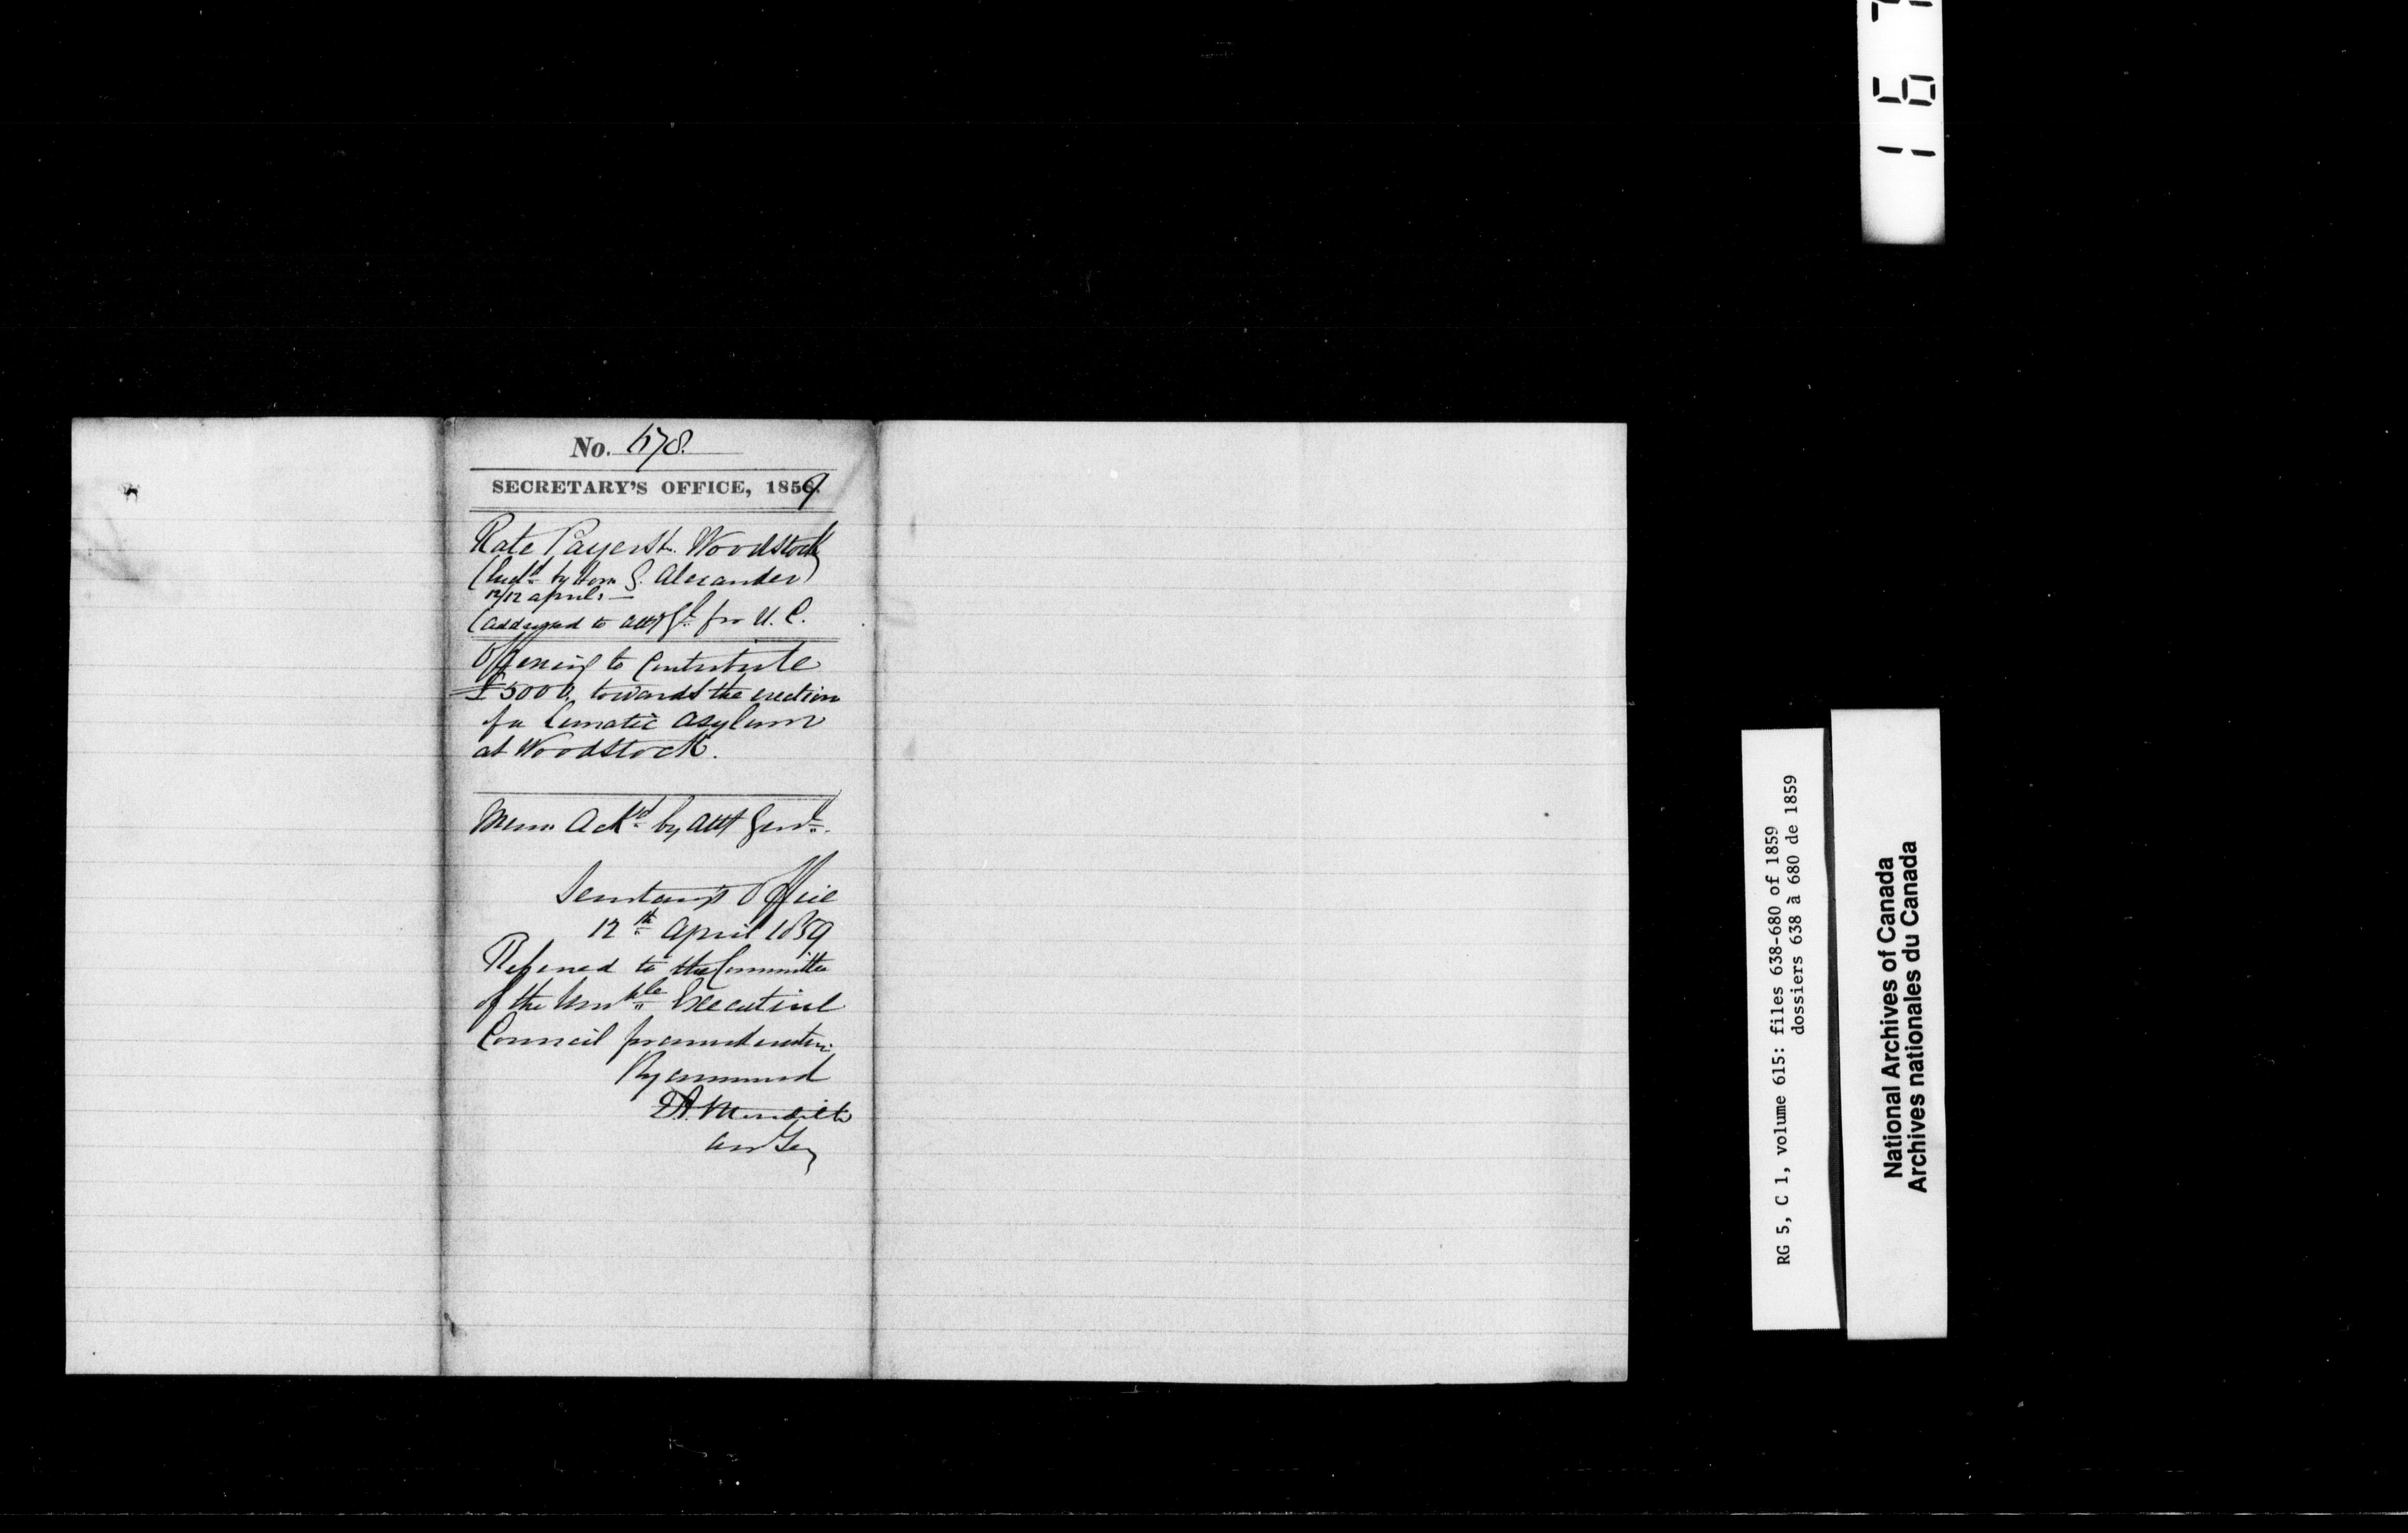 No. 678.
SECRETARY'S OFFICE, 1859
Rate Payers Woodstock
(Encld by Hon G. Alexander)
12/12 April. —
(Addressed to Atty Gl for U. C.
Offering to Contribute
£5000, towards the erection
of a Lunatic Asylum
at Woodstock.
Mem. Ackd by Att Genl.
Secretary's Office
12th April 1859
Referred to the Committee
of the Honble Executive
Council
By command
E.A. Meredith
RG 5, C 1, volume 615: files 638-680 of 1859
dossiers 638 à 680 de 1859
National Archives of Canada
Archives nationales du Canada